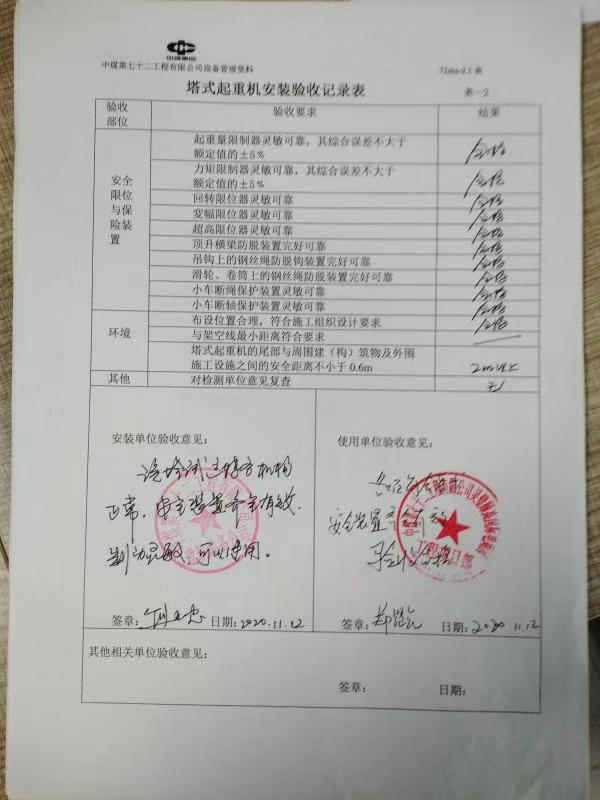 中煤集团
中煤第七十二工程有限公司设备管理资料
塔式起重机安装验收记录表
表—2
验收部位 验收要求 结果
安全限位与保险装置
起重量限制器灵敏可靠，其综合误差不大于
额定值的±5% 合格
力矩限制器灵敏可靠，其综合误差不大于
额定值的±5% 合格
回转限位器灵敏可靠 合格
变幅限位器灵敏可靠 合格
超高限位器灵敏可靠 合格
顶升横梁防脱装置完好可靠 合格
吊钩上的钢丝绳防脱钩装置完好可靠 合格
滑轮、卷筒上的钢丝绳防脱装置完好可靠 合格
小车断绳保护装置灵敏可靠 合格
小车断轴保护装置灵敏可靠 合格
环境
布设位置合理，符合施工组织设计要求 合格
与架空线最小距离符合要求
塔式起重机的尾部与周围建（构）筑物及外围
施工设施之间的安全距离不小于0.6m 2m以上
其他 对检测单位意见复查 无
安装单位验收意见：
正常，安全装置齐全有效.
制动灵敏，可以使用。
签章： 日期：2020.11.12
使用单位验收意见：
安全装置
工程项目部
签章： 日期：2020.11.12
其他相关单位验收意见：
签章： 日期：